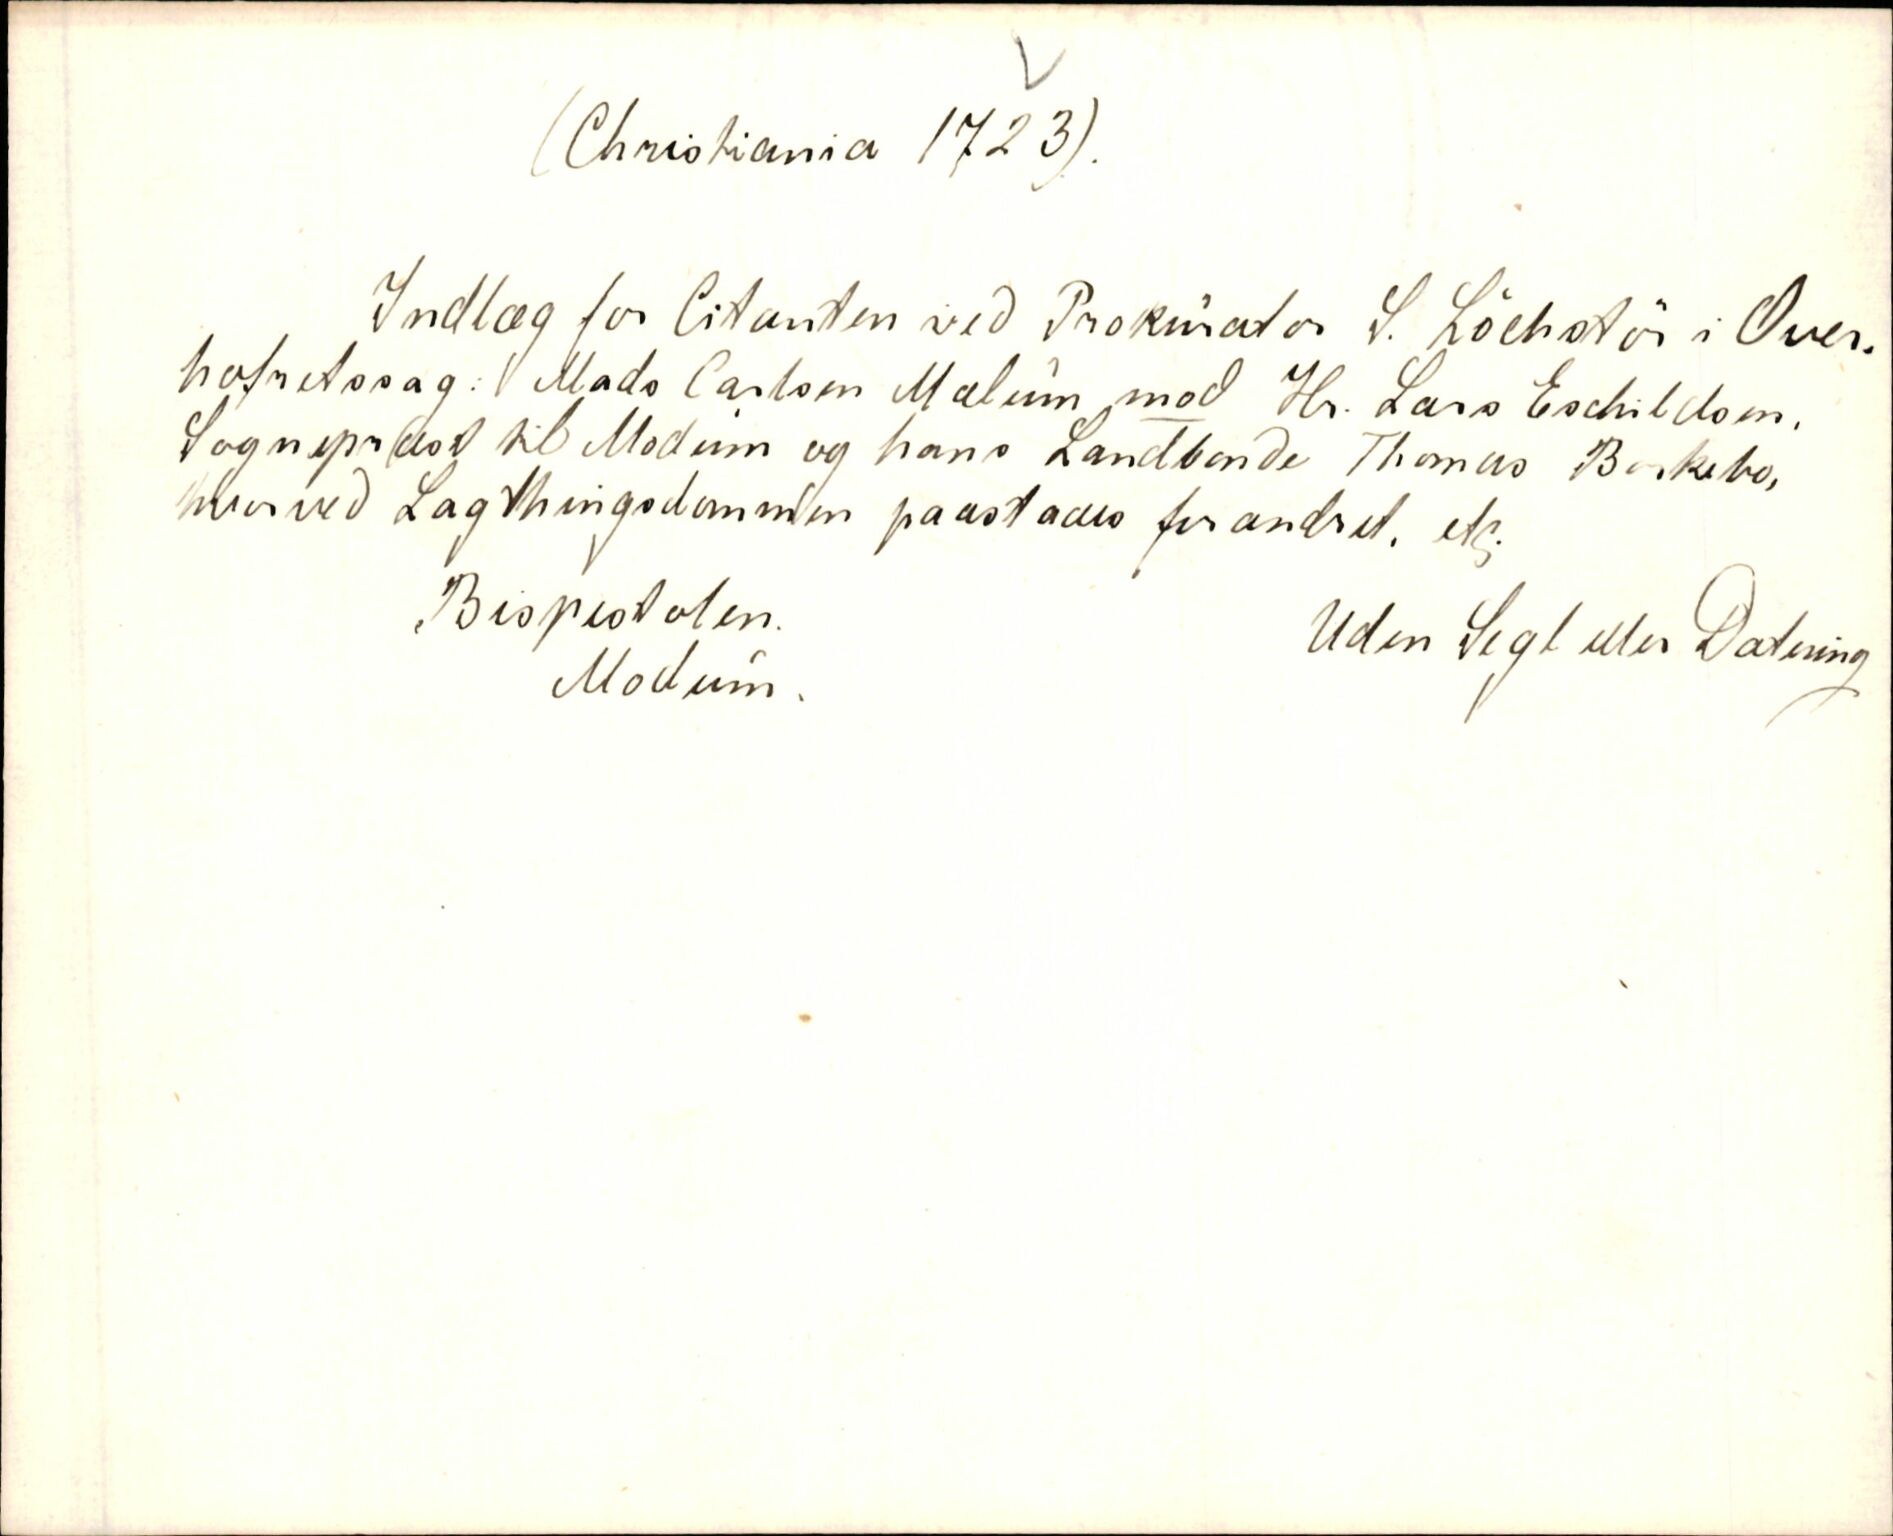 (Christiania 1723).
Indlæg for Citanten ved Prokurator S. Löchstör i Over-
hofretssag: Mads Carlsen Mælum mod Hr. Lars Eschildsen,
Sognepræst til Modum og hans Landbonde Thomas Borkebo,
hvorved Lagthingsdommen paastaaes forandret, etc.
Bispestolen.
Modum.
Uden Segl eller Datering